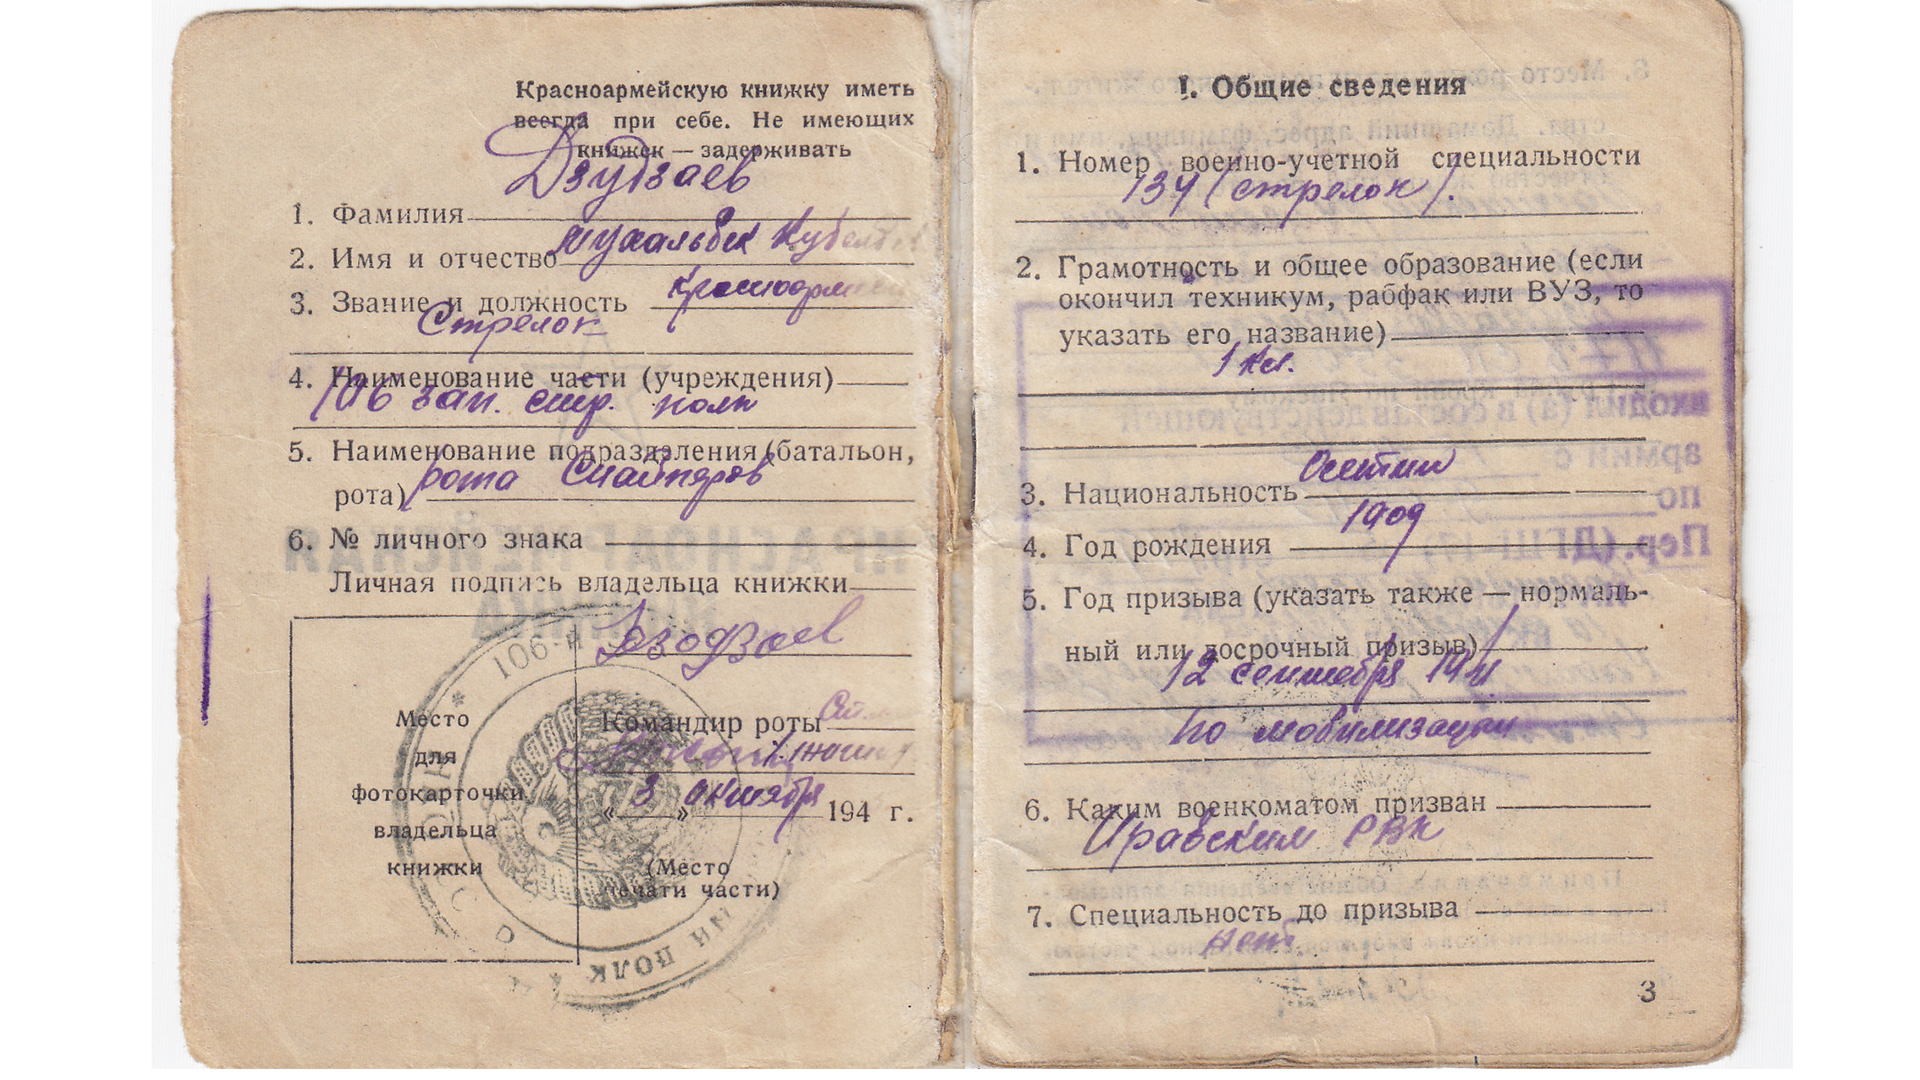 Красноармейскую книжку иметь
всегда при себе. Не имеющих
книжек — задерживать
Дзудзаев
1. Фамилия
Мухальбек
2. Имя и отчество
Красноармеец
3. Звание и должность
Стрелок
4. Наименование части (учреждения)
106 зап. стр. полк
5. Наименование подразделения (батальон,
рота) рота Снайперов
6. № личного знака
Личная подпись владельца книжки
Место
для
фотокарточки
владельца
книжки
Командир роты
« 3 » октября 194 г.
(Место
печати части)
106-й
ПОЛК
I. Общие сведения
1. Номер военно-учетной специальности
134 (стрелок).
2. Грамотность и общее образование (если
окончил техникум, рабфак или ВУЗ, то
указать его название)
1 кл.
3. Национальность Осетин
4. Год рождения 1909
5. Год призыва (указать также — нормаль-
ный или досрочный призыв)
12 сентября 1941
по мобилизации
6. Каким военкоматом призван
Ирафским РВК
7. Специальность до призыва
нет
3